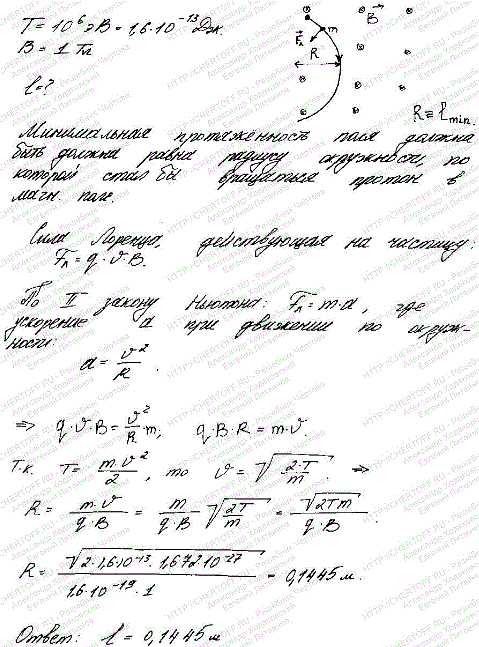 T = 10⁶ эВ = 1,6·10⁻¹³ Дж.
B = 1 Тл
l = ?
B⃗
m
F⃗л
R
R ≡ l min.
Минимальная протяженность поля должна
быть должна равна радиусу окружности, по
которой стал бы вращаться протон в
магн. поле.
Сила Лоренца, действующая на частицу:
Fл = q·v·B.
По II закону Ньютона: Fл = m·a, где
ускорение a при движении по окруж-
ности:
a = v²/R.
=> q·v·B = v²/R · m; q·B·R = m·v.
Т.к. T = m·v²/2, то v = √(2·T/m). =>
R = m·v/(q·B) = m/(q·B) √(2T/m) = √(2Tm)/(q·B).
R = √(2·1,6·10⁻¹³·1,672·10⁻²⁷)/(1,6·10⁻¹⁹·1) = 0,1445 м.
Ответ: l = 0,1445 м